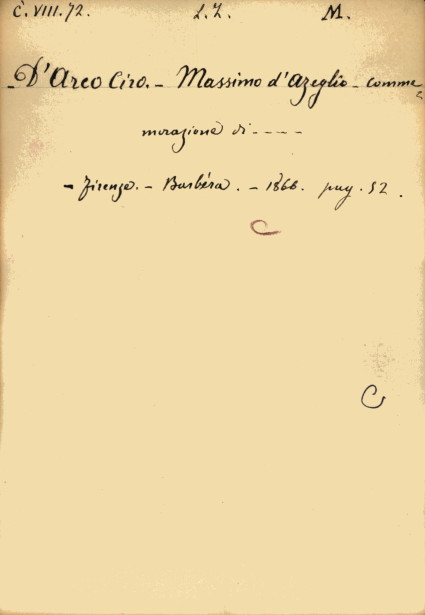 C. VIII. 72. L. Z. M.
- D'Arco Ciro. - Massimo d'Azeglio - comme
morazione di - - - -
- Firenze. - Barbéra. - 1866. pag. 52.
C
C